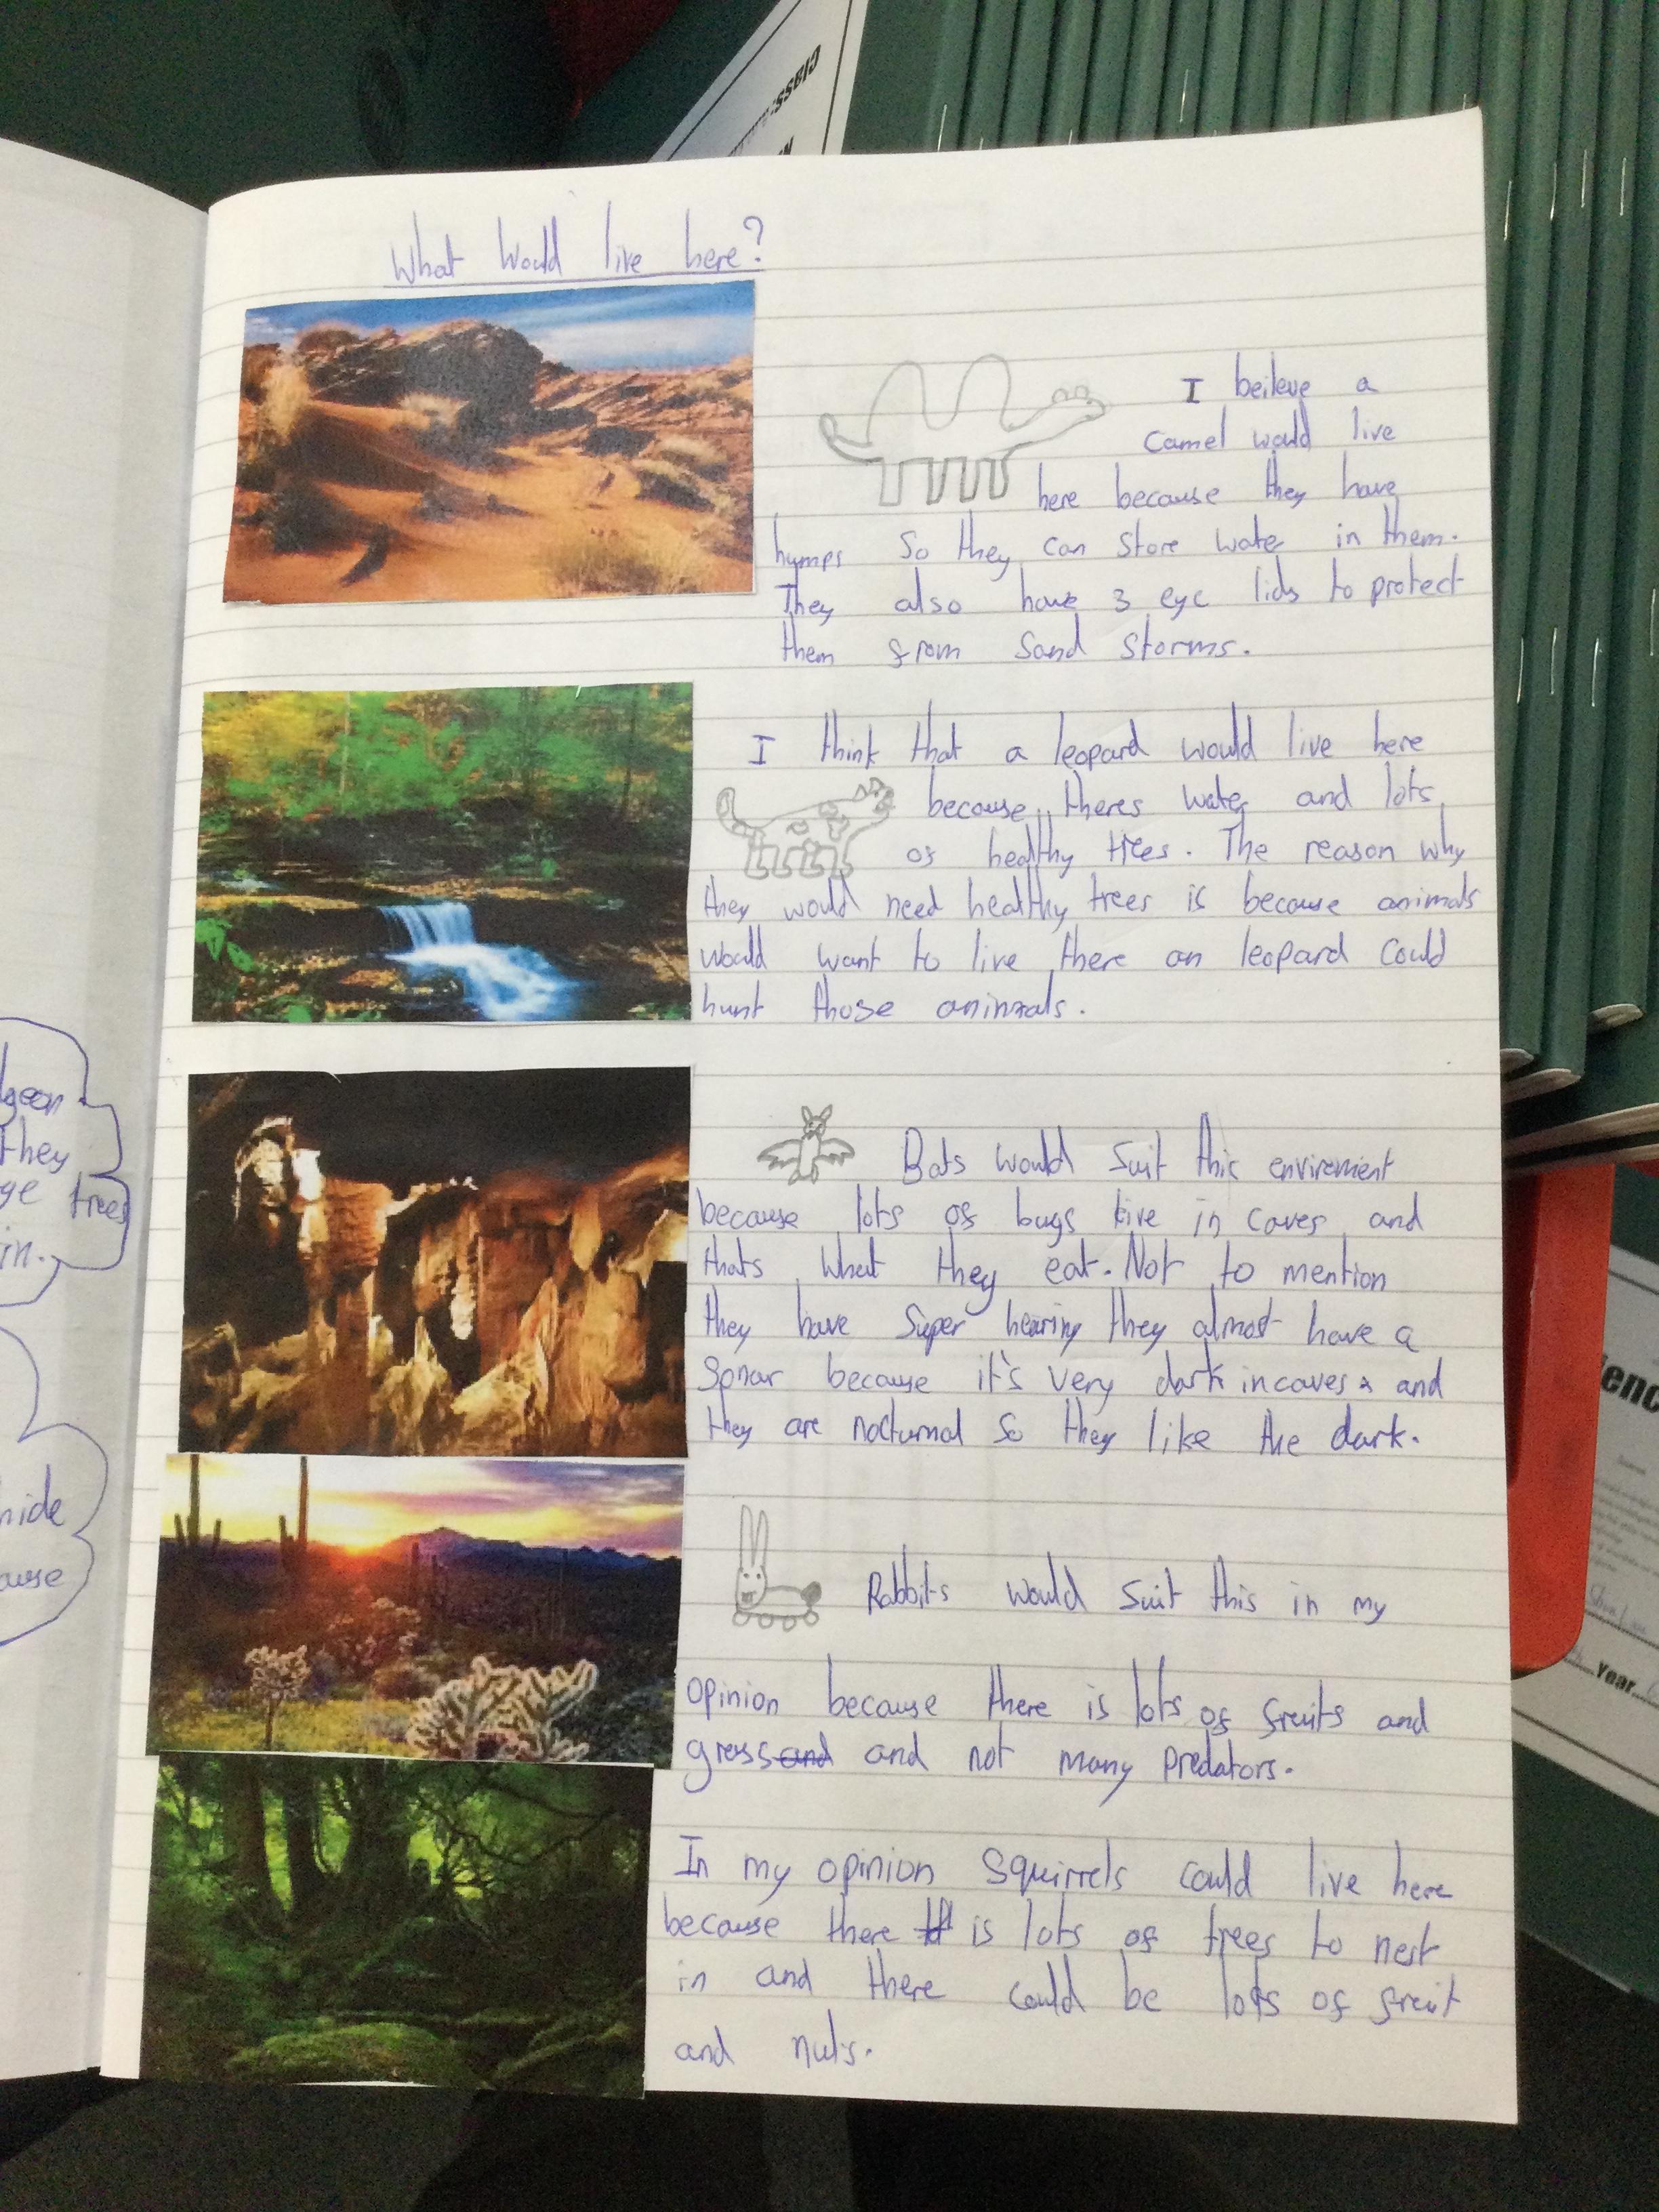 CLASS:
What would live here?
I beileve a
camel would live
here because they have
humps so they can store water in them.
They also have 3 eye lids to protect
them from sand storms.
I think that a leopard would live here
because theres water and lots
of healthy trees. The reason why
they would need healthy trees is because animals
would want to live there an leopard could
hunt those animals.
Bats would suit this enviroment
because lots of bugs live in caves and
thats what they eat. Not to mention
they have super hearing they almost have a
sonar because it's very dark in caves and
they are nocturnal so they like the dark.
Rabbits would suit this in my
opinion because there is lots of fruits and
grass and and not many predators.
In my opinion squirrels could live here
because there is lots of trees to nest
in and there could be lots of fruit
and nuts.
they
trees
in.
hide
Year